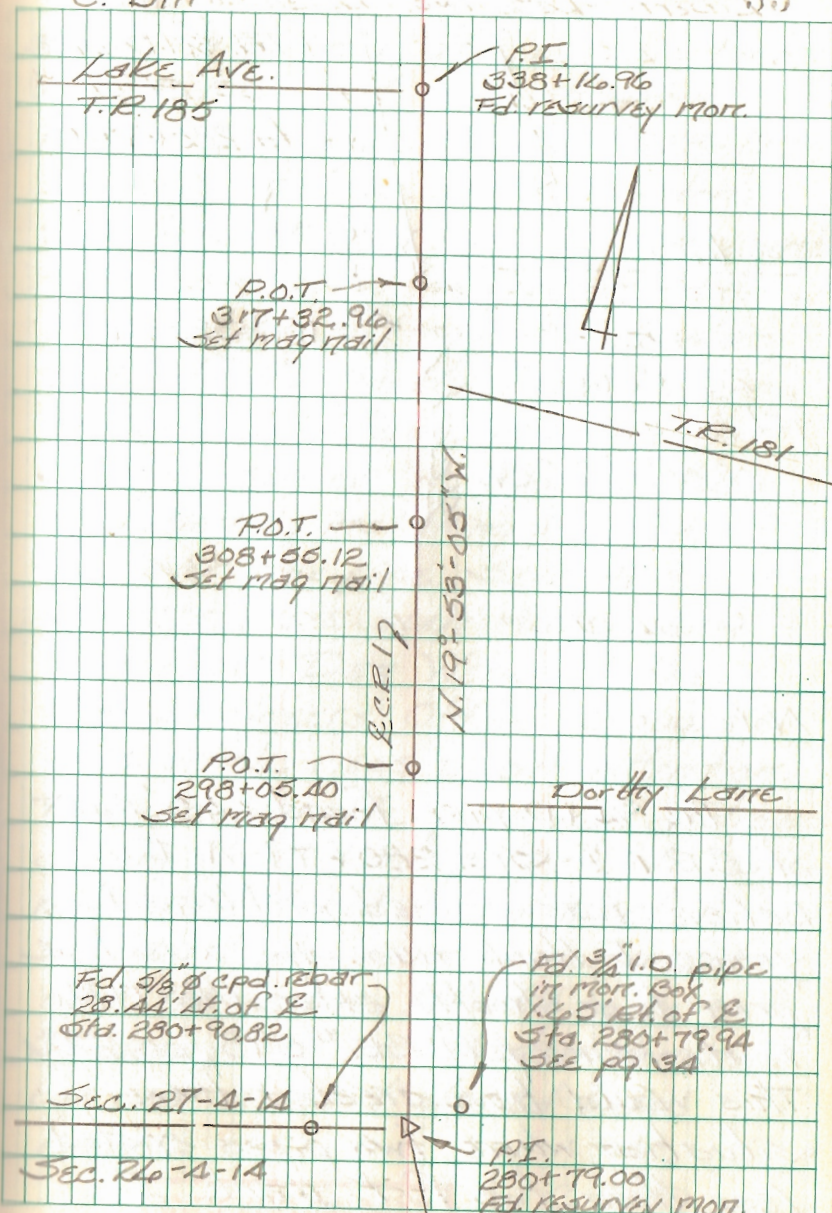 Lake Ave.
T.R. 185
P.I.
338+16.96
Fd. resurvey mon.
P.O.T.
317+32.96
Set mag nail
T.R. 181
P.O.T.
308+55.12
Set mag nail
N. 19°-53'-05" W.
℄ C.R. 17
P.O.T.
298+05.40
Set mag nail
Dorthy Lane
Fd. 5/8" ø cpd. rebar
28.44' Lt. of ℄
Sta. 280+90.82
Fd. 3/4" I.D. pipe
in mon. box
1.65' Rt. of ℄
Sta. 280+79.94
See pg 34
Sec. 27-4-14
Sec. 26-4-14
P.I.
280+79.00
Fd. resurvey mon.